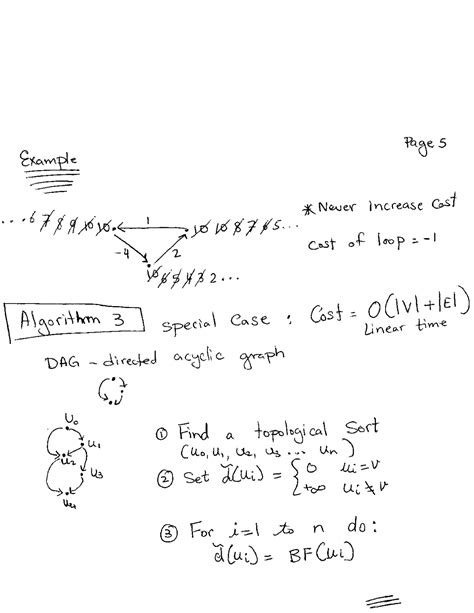 Page 5
Example
...6 7 8 9 10 10
1
10 10 8 7 6 5...
* Never increase cost
-4
2
cost of loop = -1
10 6 5 4 3 2...
Algorithm 3 special case : Cost = O(|V|+|E|)
Linear time
DAG - directed acyclic graph
u₀
① Find a topological sort
u₁
(u₀, u₁, u₂, u₃ ... uₙ)
u₂
② Set d̃(uᵢ) = { 0 uᵢ=v
u₃
+∞ uᵢ≠v
u₄
③ For i=1 to n do:
d̃(uᵢ) = BF(uᵢ)